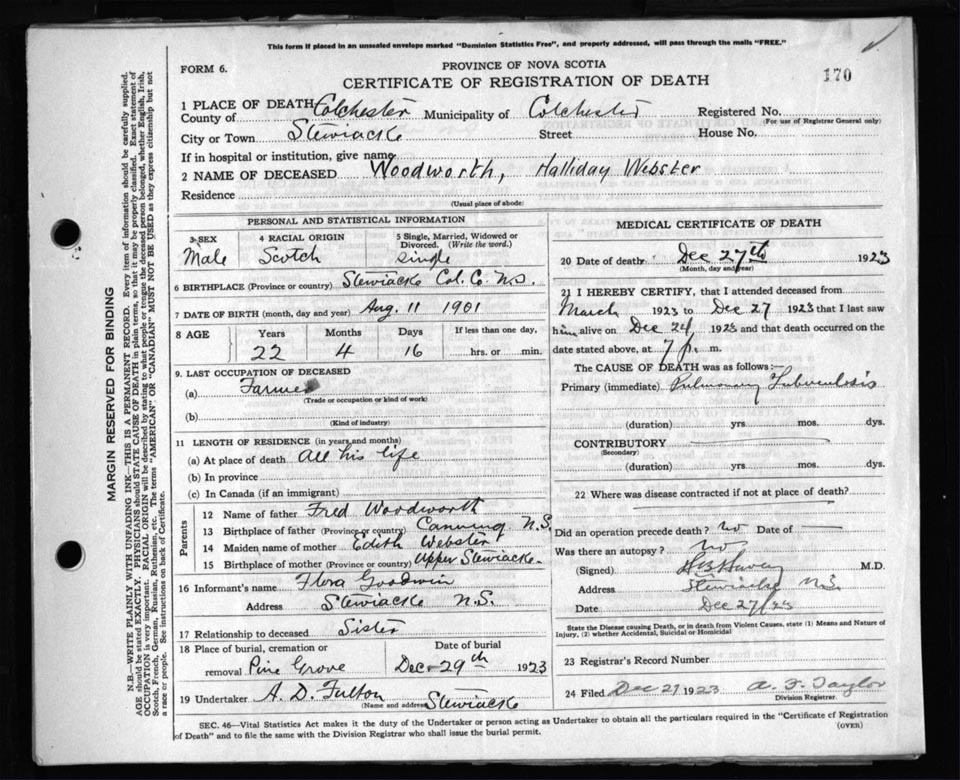 This form if placed in an unsealed envelope marked "Dominion Statistics Free", and properly addressed, will pass through the mails "FREE."
FORM 6.
PROVINCE OF NOVA SCOTIA
CERTIFICATE OF REGISTRATION OF DEATH
170
1 PLACE OF DEATH
County of Colchester Municipality of Colchester Registered No.
(For use of Registrar General only)
City or Town Stewiacke Street House No.
If in hospital or institution, give name
2 NAME OF DECEASED Woodworth, Halliday Webster
Residence
(Usual place of abode)
PERSONAL AND STATISTICAL INFORMATION
3 SEX 4 RACIAL ORIGIN 5 Single, Married, Widowed or Divorced. (Write the word.)
Male Scotch Single
6 BIRTHPLACE (Province or country) Stewiacke Col. Co. N.S.
7 DATE OF BIRTH (month, day and year) Aug. 11 1901
8 AGE Years Months Days If less than one day,
22 4 16 hrs. or min.
9. LAST OCCUPATION OF DECEASED
(a) Farmer
(Trade or occupation or kind of work)
(b)
(Kind of industry)
11 LENGTH OF RESIDENCE (in years and months)
(a) At place of death All his life
(b) In province
(c) In Canada (if an immigrant)
Parents
12 Name of father Fred Woodworth
13 Birthplace of father (Province or country) Canning N.S.
14 Maiden name of mother Edith Webster
15 Birthplace of mother (Province or country) Upper Stewiacke
16 Informant's name Flora Goodwin
Address Stewiacke N.S.
17 Relationship to deceased Sister
18 Place of burial, cremation or Date of burial
removal Pine Grove Dec 29th 1923
19 Undertaker A. D. Fulton
(Name and address) Stewiacke
MEDICAL CERTIFICATE OF DEATH
20 Date of death Dec 27th 1923
(Month, day and year)
21 I HEREBY CERTIFY, that I attended deceased from
March 1923 to Dec 27 1923 that I last saw
him alive on Dec 24, 1923 and that death occurred on
date stated above, at 7 p. m.
The CAUSE OF DEATH was as follows:—
Primary (immediate) Pulmonary Tuberculosis
(duration) yrs mos. dys.
CONTRIBUTORY
(Secondary)
(duration) yrs. mos. dys.
22 Where was disease contracted if not at place of death?
Did an operation precede death? No Date of
Was there an autopsy? No
(Signed) M.D.
Address Stewiacke N.S.
Date Dec 27/23
State the Disease causing Death, or in death from Violent Causes, state (1) Means and Nature of
Injury, (2) whether Accidental, Suicidal or Homicidal
23 Registrar's Record Number
24 Filed Dec 27 1923 A. F. Taylor
Division Registrar.
SEC. 46—Vital Statistics Act makes it the duty of the Undertaker or person acting as Undertaker to obtain all the particulars required in the "Certificate of Registration
of Death" and to file the same with the Division Registrar who shall issue the burial permit.
(OVER)
MARGIN RESERVED FOR BINDING
N.B.—WRITE PLAINLY WITH UNFADING INK—THIS IS A PERMANENT RECORD. Every item of information should be carefully supplied.
AGE should be stated EXACTLY. PHYSICIANS should STATE CAUSE OF DEATH in plain terms, so that it may be properly classified. Exact statement of
OCCUPATION is very important. RACIAL ORIGIN will be described by stating to what people or tongue the deceased person belonged, whether English, Irish,
Scotch, French, German, Russian, Ruthenian, etc. The terms "AMERICAN" OR "CANADIAN" MUST NOT BE USED as they express citizenship but not
a race or people. See instructions on back of Certificate.